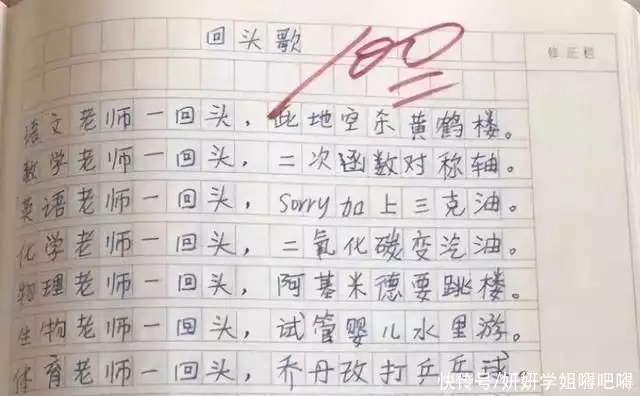 回头歌
100
修正栏
语文老师一回头，此地空杀黄鹤楼。
数学老师一回头，二次函数对称轴。
英语老师一回头，Sorry加上三克油。
化学老师一回头，二氧化碳变汽油。
物理老师一回头，阿基米德要跳楼。
生物老师一回头，试管婴儿水里游。
体育老师一回头，乔丹改打乒乓球。
快传号/妍妍学姐嘚吧嘚